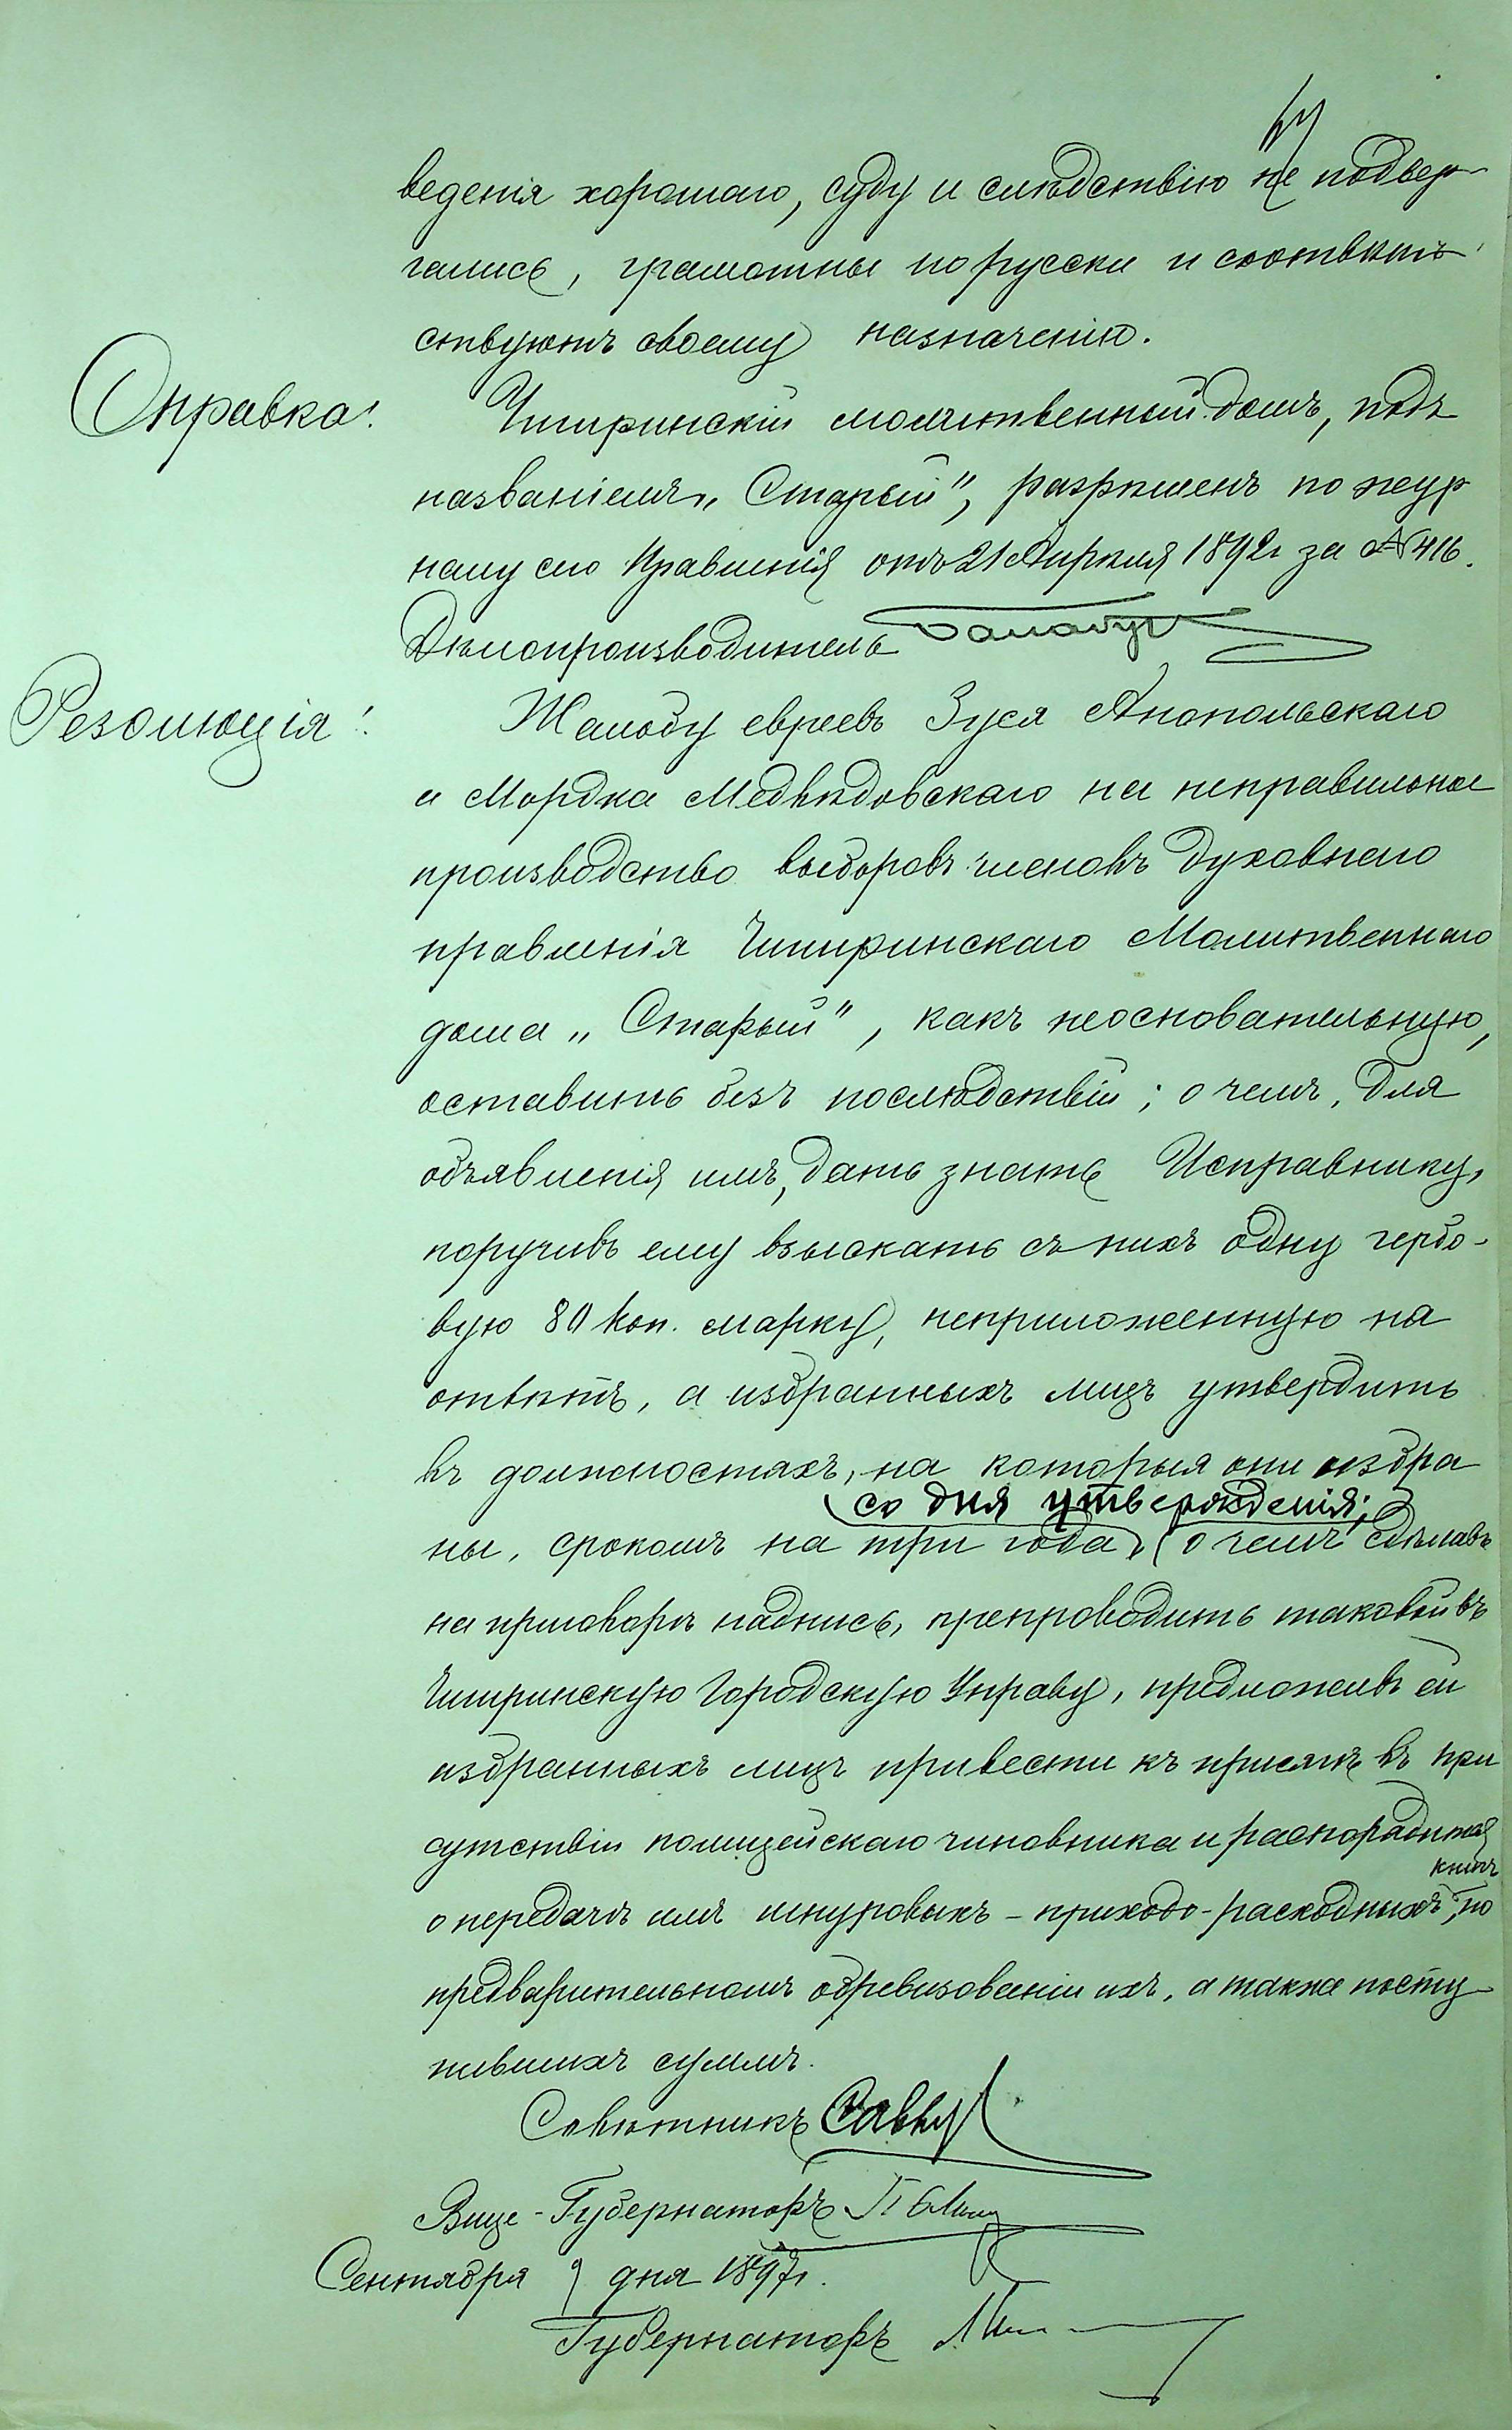 веденія хорошаго, суду и слѣдствію не подвер-
гались, грамотны по русски и соотвѣт-
ствуютъ своему назначенію.
Справка:
Чигиринскій молитвенный домъ, подъ
названіемъ „Старый", разрѣшенъ по жур
налу сего Правленія отъ 21 Апрѣля 1892 г за № 416.
Дѣлопроизводитель
Резолюція:
Жалобу евреевъ Зуся Анопольскаго
и Мордка Медвѣдовскаго на неправильное
производство выборовъ членовъ духовнаго
правленія Чигиринскаго Молитвеннаго
дома „Старый", какъ неосновательную,
оставить безъ послѣдствій; о чемъ, для
объявленія имъ, дать знать Исправнику,
поручивъ ему взыскать съ нихъ одну гербо-
вую 80 коп. марку, неприложенную на
отвѣтъ, а избранныхъ лицъ утвердить
въ должностяхъ, на которыя они избра
со дня утвержденія;
ны, срокомъ на три года, о чемъ сдѣлавъ
на приговорѣ надпись, препроводить таковой въ
Чигиринскую Городскую Управу, предложивъ ей
избранныхъ лицъ привести къ присягѣ въ при
сутствіи полицейскаго чиновника и распорядиться
книгъ
о передачѣ имъ шнуровыхъ - приходо-расходныхъ, по
предварительномъ обревизованіи ихъ, а также посту
пившихъ суммъ.
Совѣтникъ
Вице-Губернаторъ
Сентября 9 дня 1897 г.
Губернаторъ